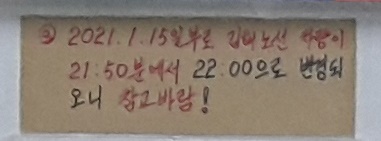 ③ 2021.1.15일부로 김해노선 막차이
21:50분에서 22:00으로 변경되
오니 참고바람!